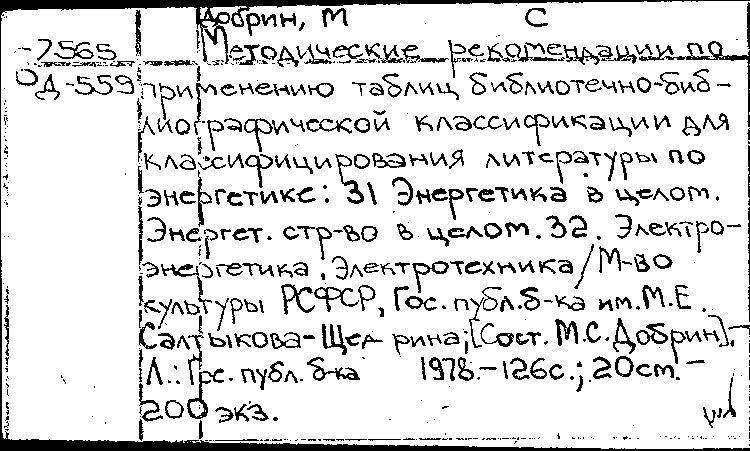 Добрин, М С
-7565 Методические рекомендации по
Д-559 применению таблиц библиотечно-биб-
лиографической классификации для
классифицирования литературы по
энергетике: 31 Энергетика в целом.
Энергет. стр-во в целом. 32. Электро-
энергетика. Электротехника/М-во
культуры РСФСР, Гос. публ. б-ка им. М.Е.
Салтыкова-Щедрина; [Сост. М.С. Добрин].-
Л.: Гос. публ. б-ка 1978.-126с.; 20см.-
200 экз.